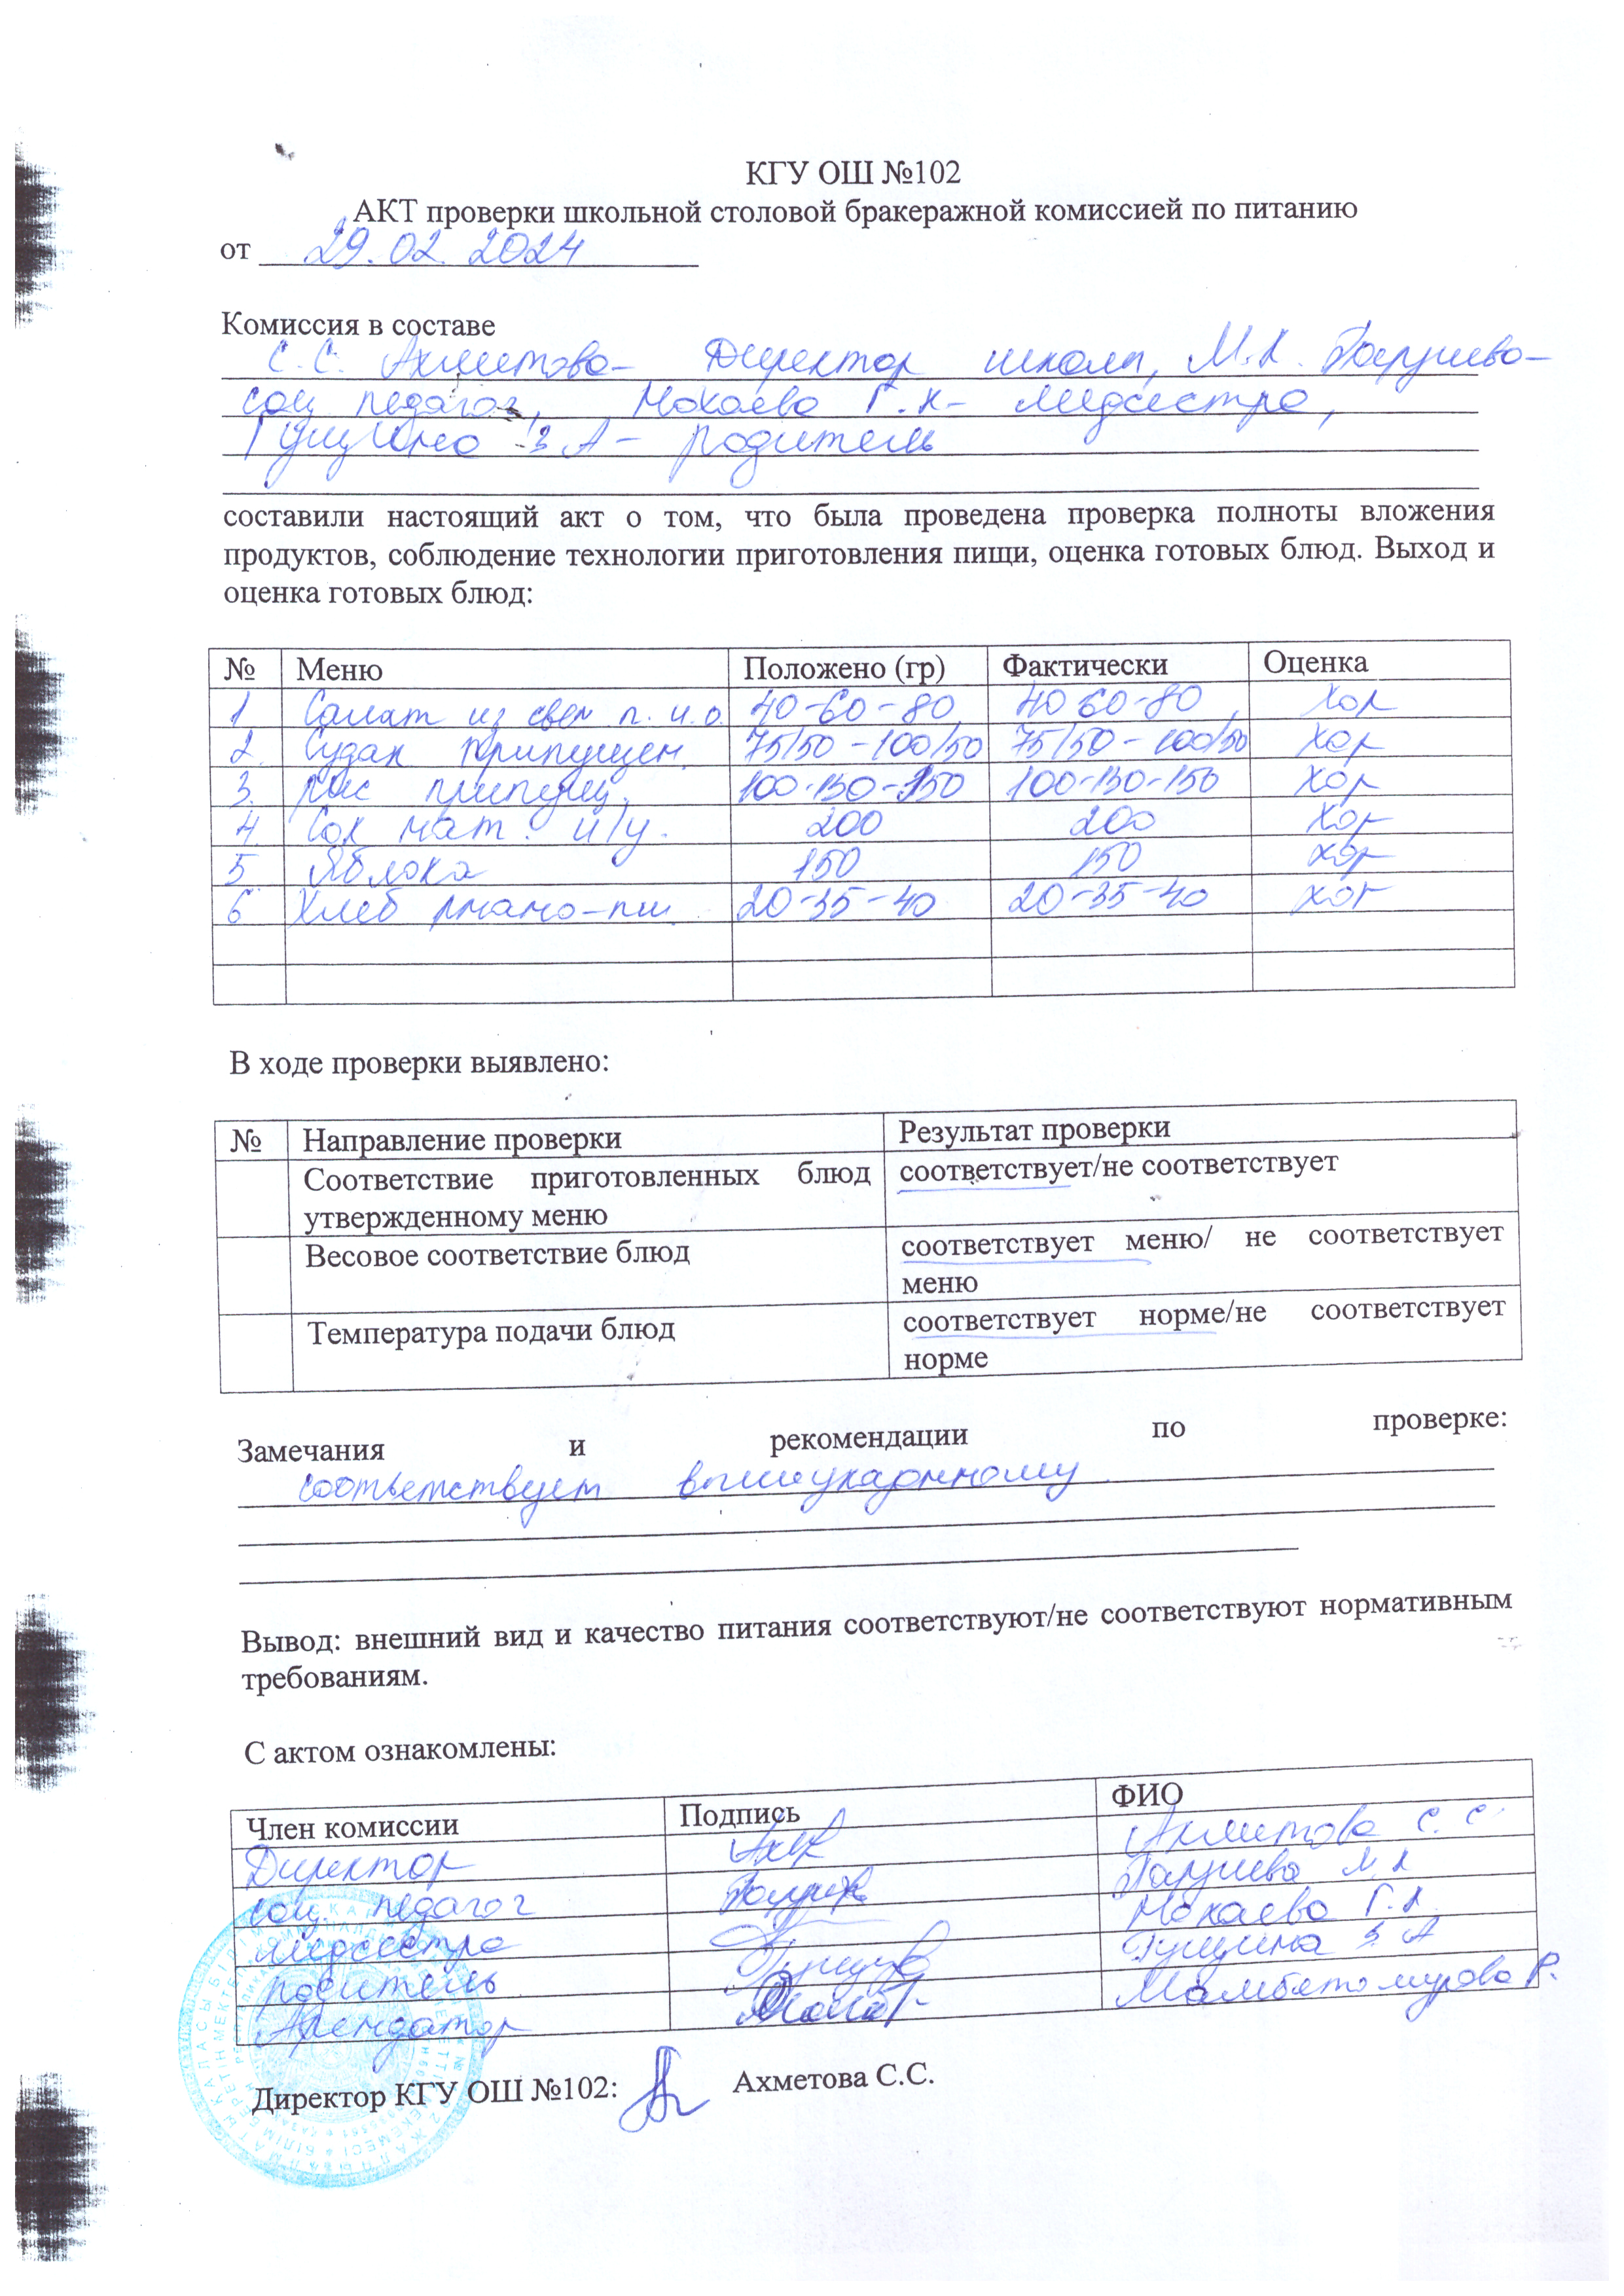 КГУ ОШ №102
АКТ проверки школьной столовой бракеражной комиссией по питанию
от 29.02.2024
Комиссия в составе
С.С. Ахметова – Директор школы, М.К.
соц педагог, Мокаева Г.К – медсестра,
Гущина З А – родитель
составили настоящий акт о том, что была проведена проверка полноты вложения
продуктов, соблюдение технологии приготовления пищи, оценка готовых блюд. Выход и
оценка готовых блюд:
№ Меню Положено (гр) Фактически Оценка
1 Салат из свеж п. и о. 40-60-80 40 60-80 хор
2. Судак припущен. 75/50-100/50 75/50-100/50 хор
3. рис припущ. 100-130-150 100-130-150 хор
4. Сок нат. и/у. 200 200 хор
5 Яблоко 150 150 хор
6 Хлеб ржано-пш. 20-35-40 20-35-40 хор
В ходе проверки выявлено:
№ Направление проверки Результат проверки
Соответствие приготовленных блюд соответствует/не соответствует
утвержденному меню
Весовое соответствие блюд соответствует меню/ не соответствует
меню
Температура подачи блюд соответствует норме/не соответствует
норме
Замечания и рекомендации по проверке:
соответствует вышеуказанному
Вывод: внешний вид и качество питания соответствуют/не соответствуют нормативным
требованиям.
С актом ознакомлены:
Член комиссии Подпись ФИО
Директор Ахметова С. С.
соц. педагог М К
медсестра Мокаева Г.К.
родитель Гущина З А
Арендатор Мамбетомурова Р.
Директор КГУ ОШ №102: Ахметова С.С.